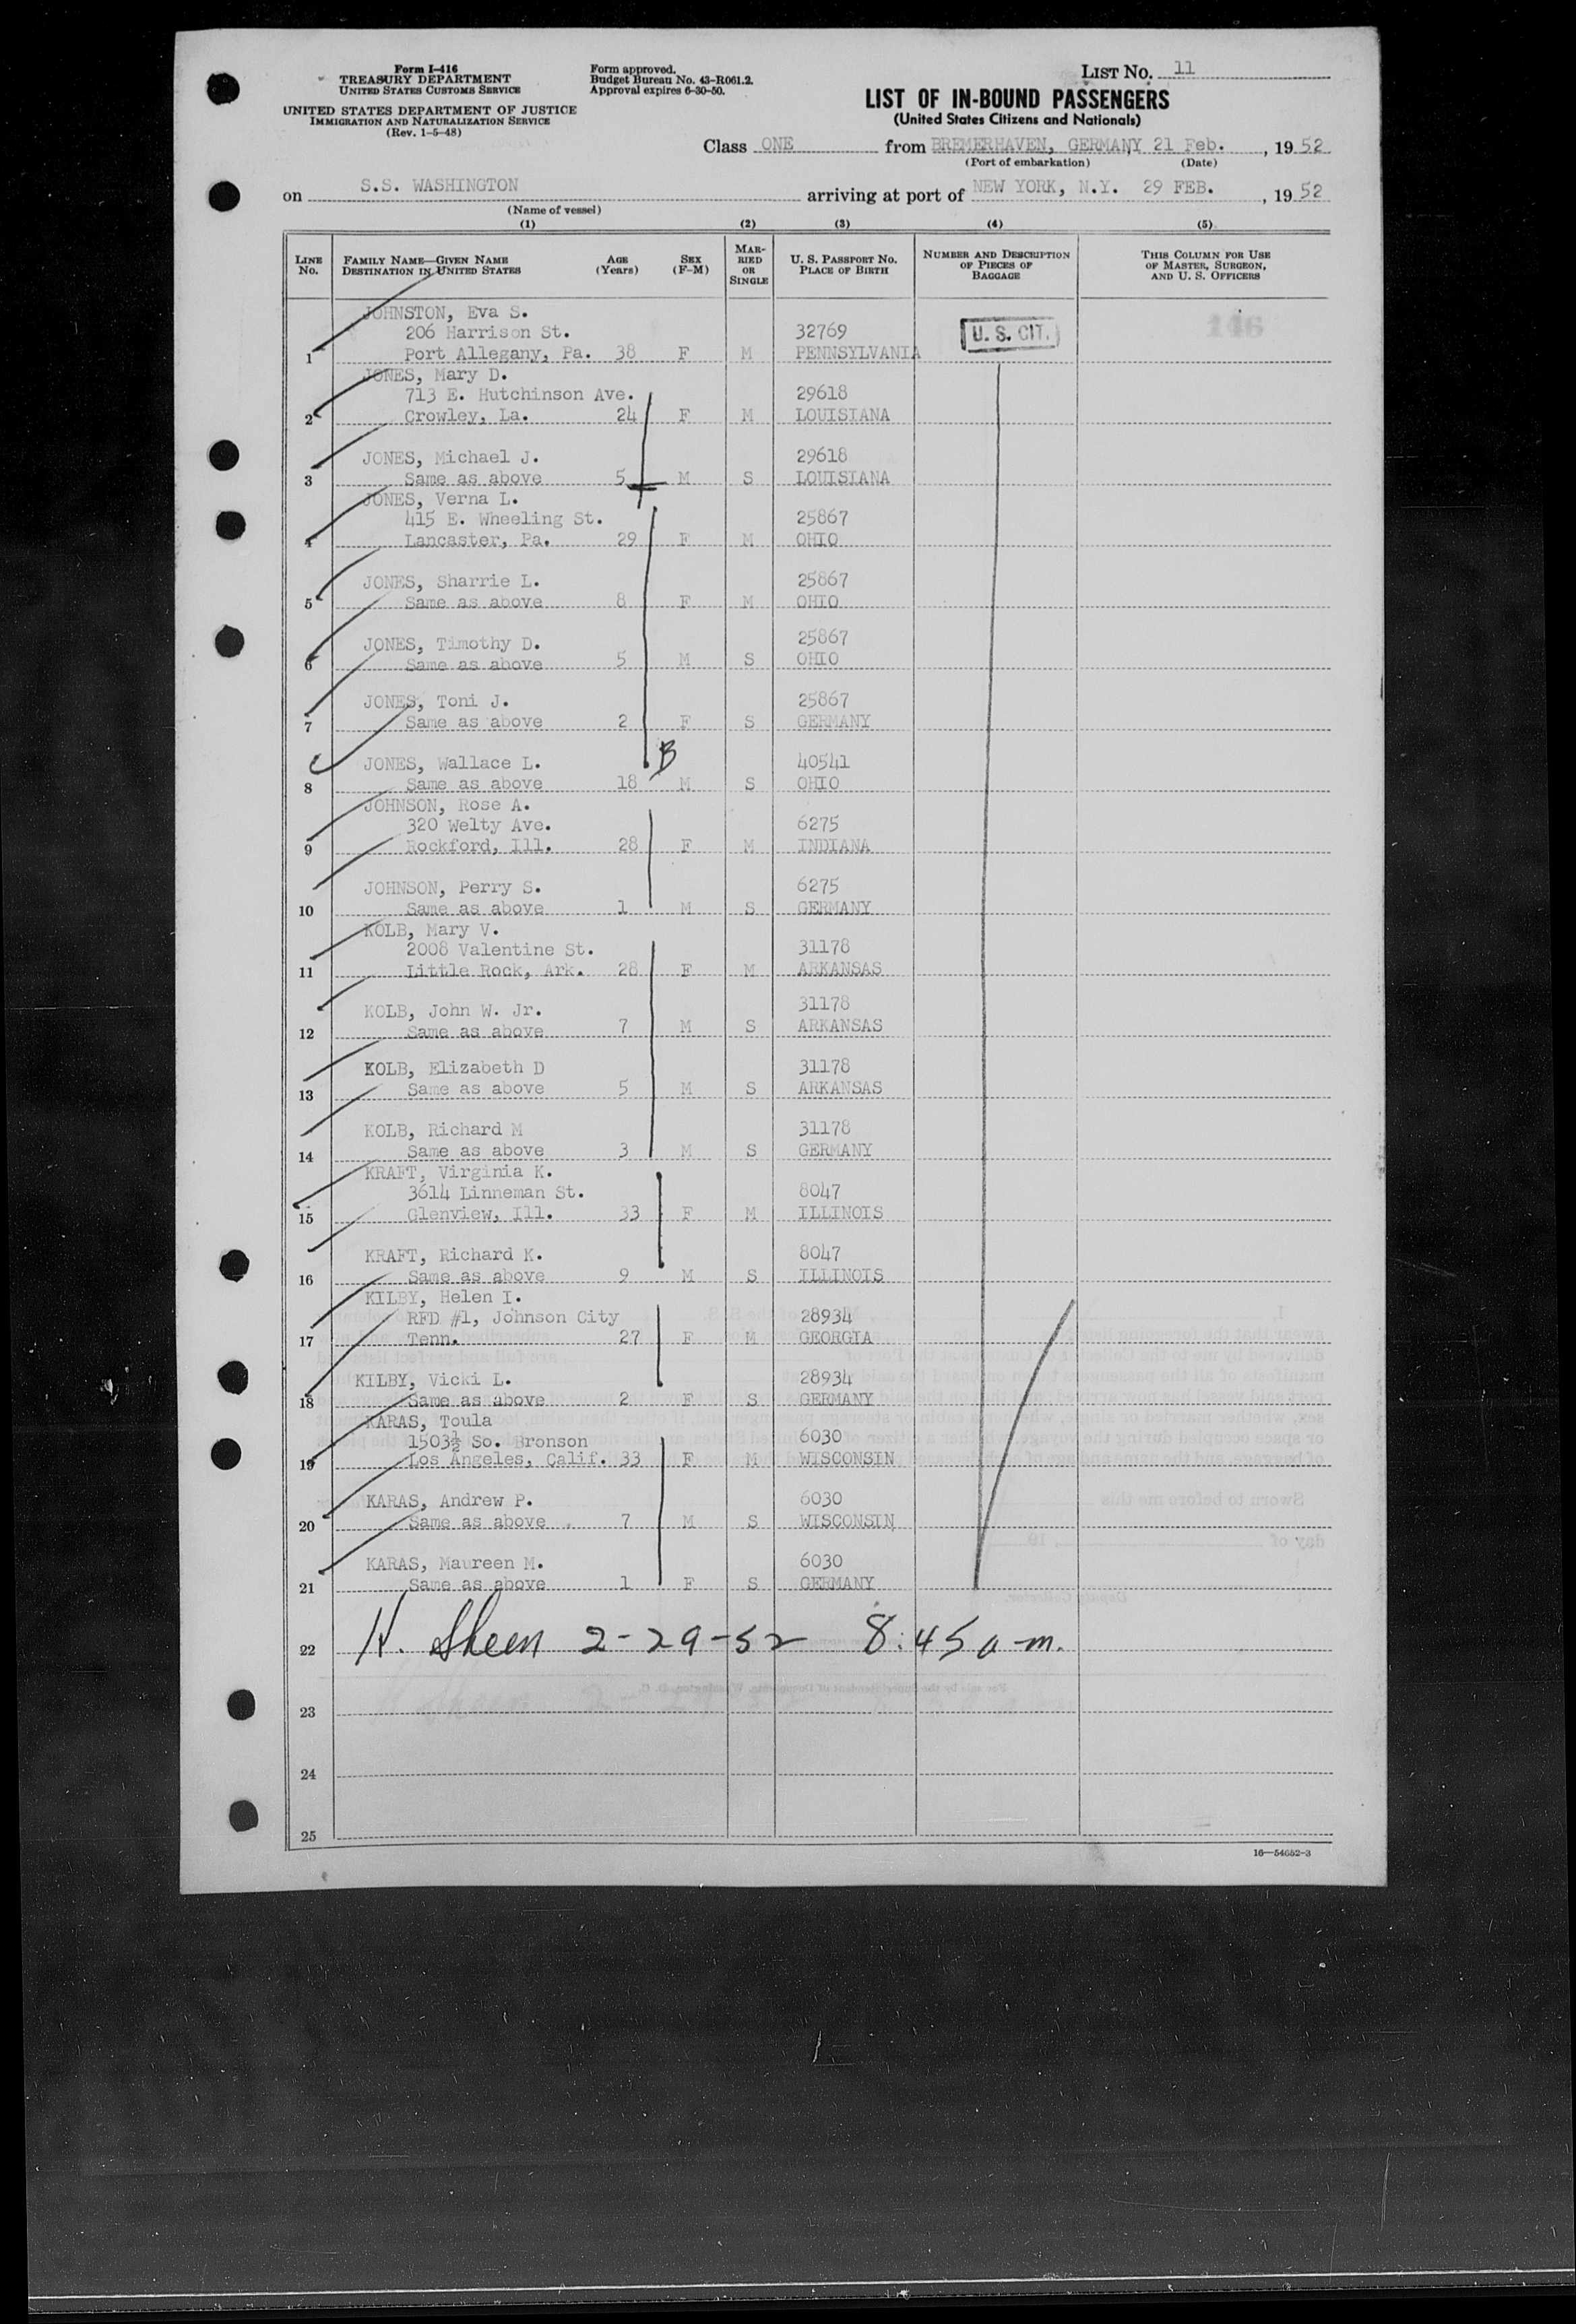 Form I-416
TREASURY DEPARTMENT
UNITED STATES CUSTOMS SERVICE
UNITED STATES DEPARTMENT OF JUSTICE
IMMIGRATION AND NATURALIZATION SERVICE
(Rev. 1-5-48)
Form approved.
Budget Bureau No. 43-R061.2.
Approval expires 6-30-50.
LIST NO. 11
LIST OF IN-BOUND PASSENGERS
(United States Citizens and Nationals)
Class ONE from BREMERHAVEN, GERMANY 21 Feb., 1952
(Port of embarkation) (Date)
on S.S. WASHINGTON arriving at port of NEW YORK, N.Y. 29 FEB., 1952
(Name of vessel)
(1) (2) (3) (4) (5)
LINE No.
FAMILY NAME—GIVEN NAME
DESTINATION IN UNITED STATES
AGE (Years)
SEX (F-M)
MARRIED OR SINGLE
U. S. PASSPORT NO.
PLACE OF BIRTH
NUMBER AND DESCRIPTION OF PIECES OF BAGGAGE
THIS COLUMN FOR USE OF MASTER, SURGEON, AND U. S. OFFICERS
JOHNSTON, Eva S.
206 Harrison St. 32769 U. S. CIT. 146
1 Port Allegany, Pa. 38 F M PENNSYLVANIA
JONES, Mary D.
713 E. Hutchinson Ave. 29618
2 Crowley, La. 24 F M LOUISIANA
JONES, Michael J. 29618
3 Same as above 5 M S LOUISIANA
JONES, Verna L.
415 E. Wheeling St. 25867
4 Lancaster, Pa. 29 F M OHIO
JONES, Sharrie L. 25867
5 Same as above 8 F M OHIO
JONES, Timothy D. 25867
6 Same as above 5 M S OHIO
JONES, Toni J. 25867
7 Same as above 2 F S GERMANY
B
JONES, Wallace L. 40541
8 Same as above 18 M S OHIO
JOHNSON, Rose A.
320 Welty Ave. 6275
9 Rockford, Ill. 28 F M INDIANA
JOHNSON, Perry S. 6275
10 Same as above 1 M S GERMANY
KOLB, Mary V.
2008 Valentine St. 31178
11 Little Rock, Ark. 28 F M ARKANSAS
KOLB, John W. Jr. 31178
12 Same as above 7 M S ARKANSAS
KOLB, Elizabeth D 31178
13 Same as above 5 M S ARKANSAS
KOLB, Richard M 31178
14 Same as above 3 M S GERMANY
KRAFT, Virginia K.
3614 Linneman St. 8047
15 Glenview, Ill. 33 F M ILLINOIS
KRAFT, Richard K. 8047
16 Same as above 9 M S ILLINOIS
KILBY, Helen I.
RFD #1, Johnson City 28934
17 Tenn. 27 F M GEORGIA
KILBY, Vicki L. 28934
18 Same as above 2 F S GERMANY
KARAS, Toula
1503½ So. Bronson 6030
19 Los Angeles, Calif. 33 F M WISCONSIN
KARAS, Andrew P. 6030
20 Same as above 7 M S WISCONSIN
KARAS, Maureen M. 6030
21 Same as above 1 F S GERMANY
22 H. Sheen 2-29-52 8:45 a-m.
23
24
25
16—54652-3